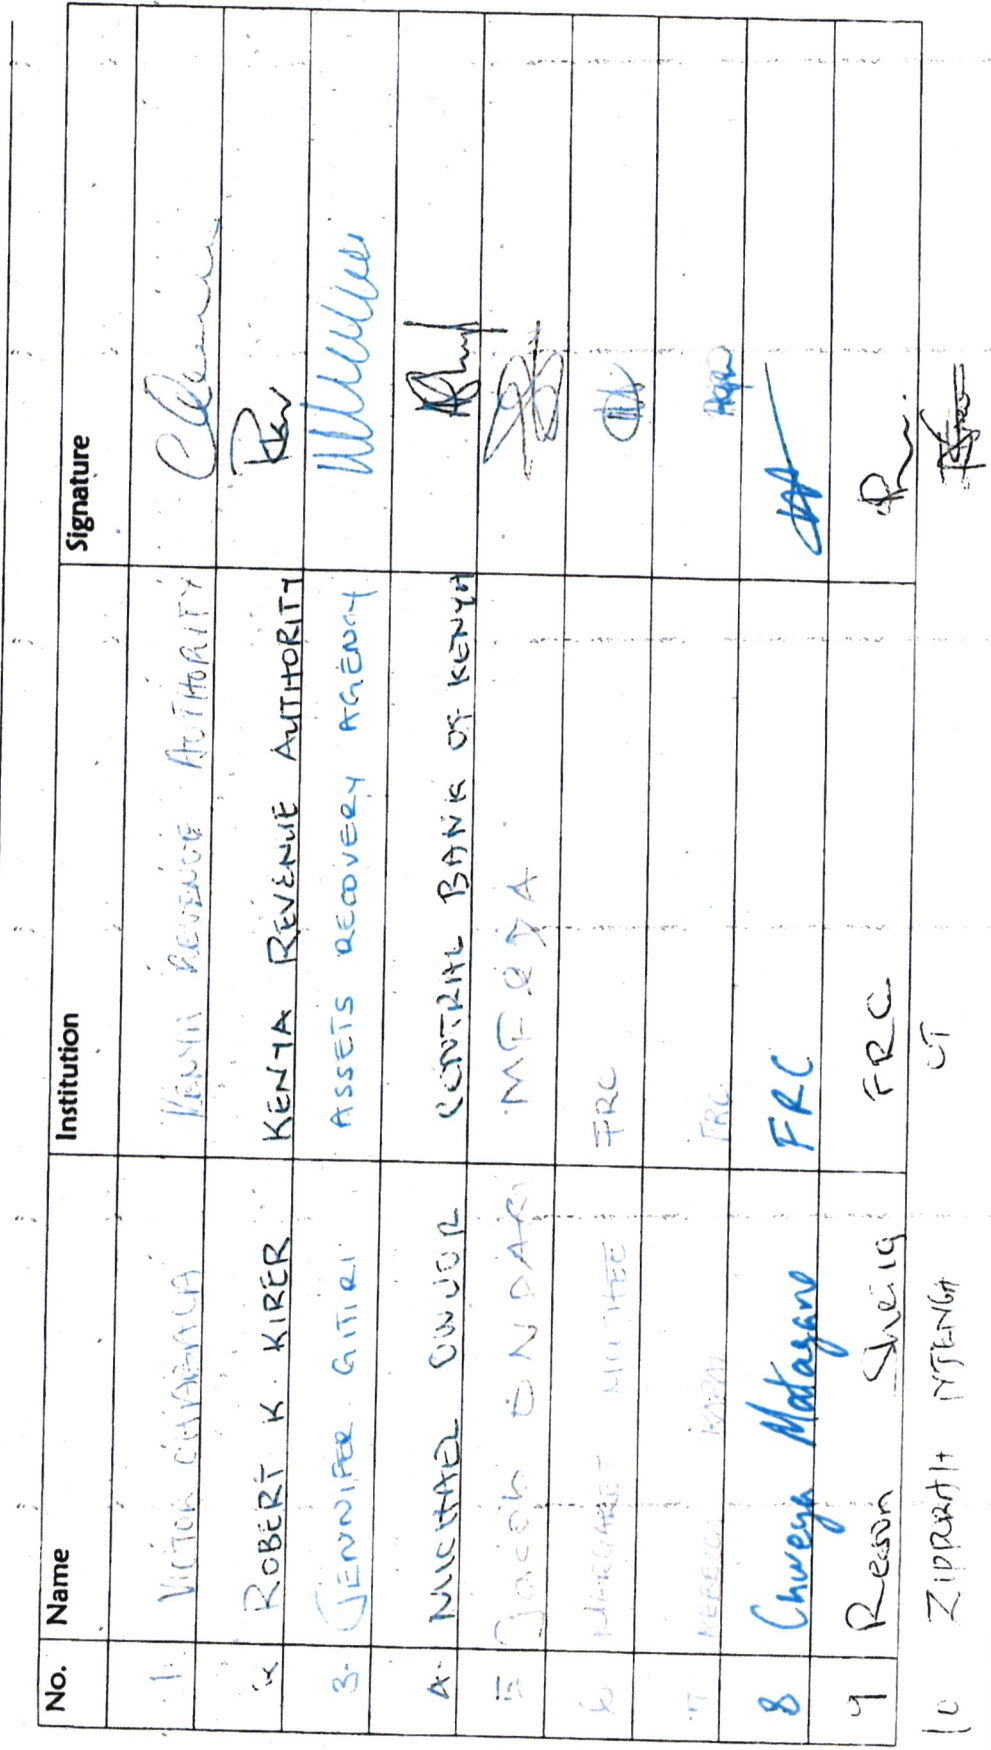 No. Name Institution Signature
1. VICTOR CHABALA KENYA REVENUE AUTHORITY
2. ROBERT K. KIRER KENYA REVENUE AUTHORITY
3. JENNIFER GITIRI ASSETS RECOVERY AGENCY
4. MICHAEL OWUOR CENTRAL BANK OF KENYA
5 Jacob ONDARI
6 MARGARET FRC
7 FRC
8 Chweya Matagaro FRC
9 Reason FRC
10 ZIPPORAH